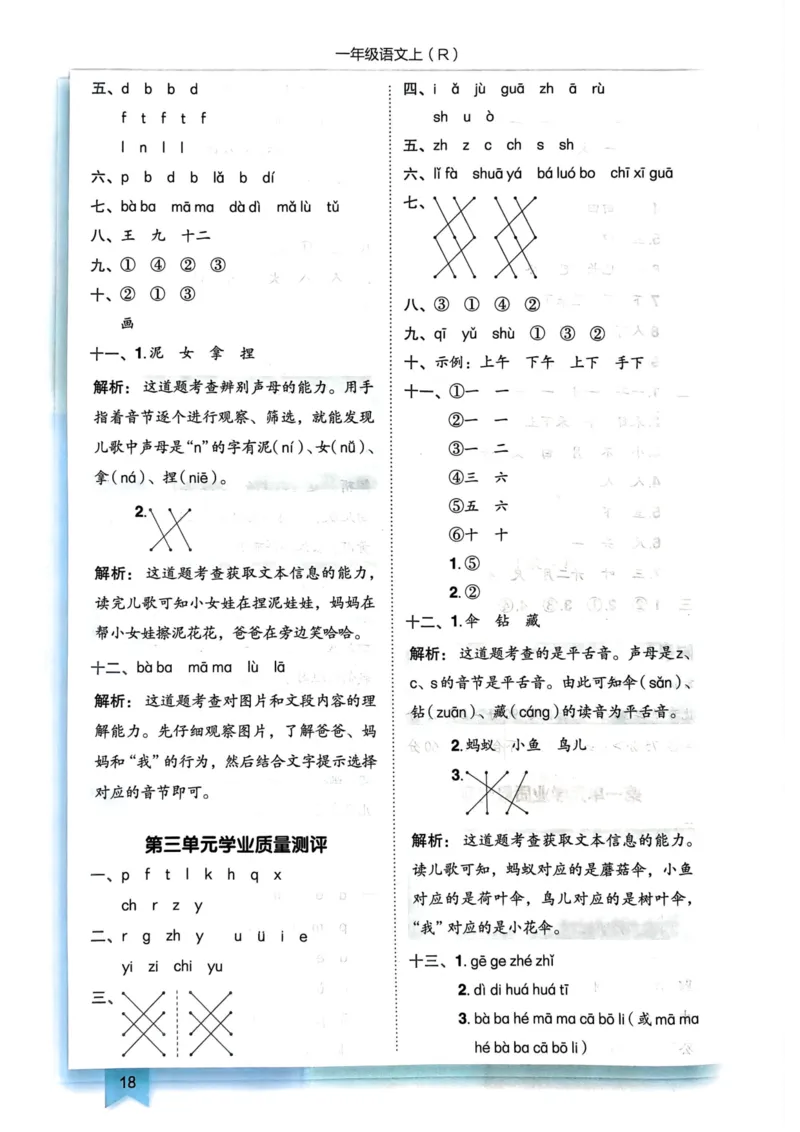 一年级语文上（R）
五、d b b d
f t f t f
l n l l
六、p b d b lǎ b dí
七、bà ba mā ma dà dì mǎ lù tǔ
八、王 九 十二
九、① ④ ② ③
十、② ① ③
画
十一、1.泥 女 拿 捏
解析： 这道题考查辨别声母的能力。用手
指着音节逐个进行观察、筛选，就能发现
儿歌中声母是“n”的字有泥(ní)、女(nǚ)、
拿(ná)、捏(niē)。
2.
解析： 这道题考查获取文本信息的能力，
读完儿歌可知小女娃在捏泥娃娃，妈妈在
帮小女娃擦泥花花，爸爸在旁边笑哈哈。
十二、bà ba mā ma lù lā
解析： 这道题考查对图片和文段内容的理
解能力。先仔细观察图片，了解爸爸、妈
妈和“我”的行为，然后结合文字提示选择
对应的音节即可。
第三单元学业质量测评
一、p f t l k h q x
ch r z y
二、r g zh y u ü i e
yi zi chi yu
三、
四、i ǎ jù guā zh ā rù
sh u ò
五、zh z c ch s sh
六、lǐ fà shuā yá bá luó bo chī xī guā
七、
八、③ ① ④ ②
九、qī yǔ shù ① ③ ②
十、示例：上午 下午 上下 手下
十一、①一 一
②一 一
③一 二
④三 六
⑤五 六
⑥十 十
1.⑤
2.②
十二、1.伞 钻 藏
解析： 这道题考查的是平舌音。声母是z、
c、s的音节是平舌音。由此可知伞(sǎn)、
钻(zuān)、藏(cáng)的读音为平舌音。
2.蚂蚁 小鱼 鸟儿
3.
解析： 这道题考查获取文本信息的能力。
读儿歌可知，蚂蚁对应的是蘑菇伞，小鱼
对应的是荷叶伞，鸟儿对应的是树叶伞，
“我”对应的是小花伞。
十三、1. gē ge zhé zhǐ
2. dì di huá huá tī
3. bà ba hé mā ma cā bō li（或 mā ma
hé bà ba cā bō li）
18